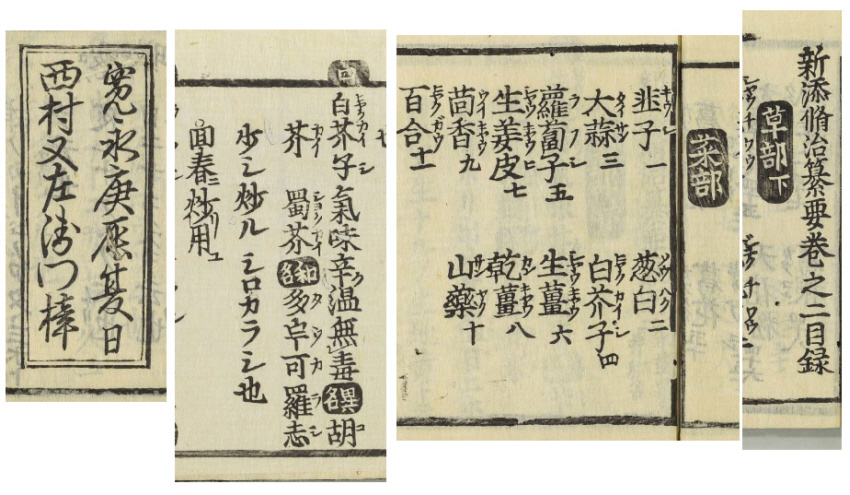 新添脩治纂要巻之二目録
草部下
菜部
韭子一 葱白二
大蒜三 白芥子四
蘿蔔子五 生薑六
生姜皮七 乾薑八
茴香九 山藥十
百合十一
白芥子氣味辛温無毒異名胡
芥 蜀芥 和名多宇可羅志
少シ炒ル シロカラシ也
面春炒用
寛永庚辰夏日
西村又左衛門梓